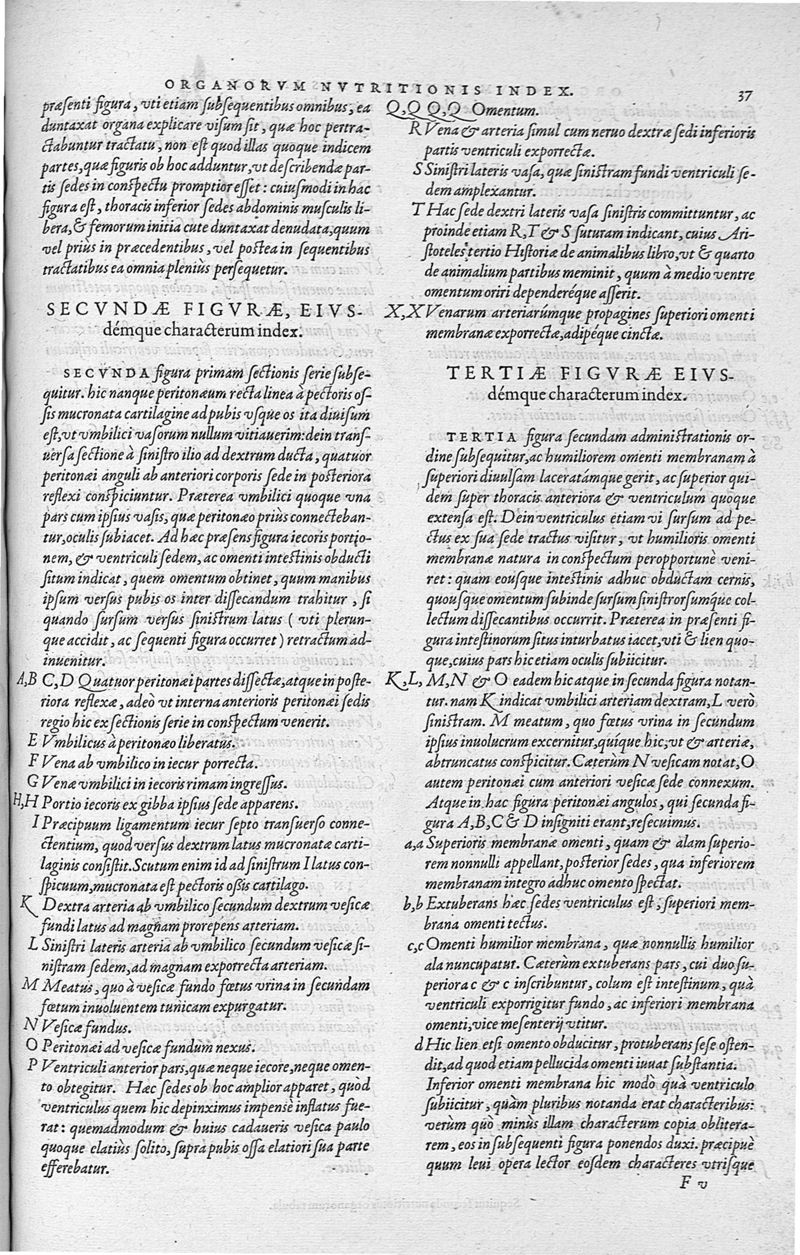 ORGANORVM NVTRITIONIS INDEX.
37
præsenti figura, vti etiam subsequentibus omnibus, ea
duntaxat organa explicare visum sit, quæ hoc pertra-
ctabuntur tractatu, non est quod illas quoque indicem
partes, quæ figuris ob hoc adduntur, vt describendæ par-
tis sedes in conspectu promptior esset: cuiusmodi in hac
figura est, thoracis inferior sedes abdominis musculis li-
bera, & femorum initia cute duntaxat denudata, quum
vel prius in præcedentibus, vel postea in sequentibus
tractatibus ea omnia plenius persequetur.
SECVNDÆ FIGVRÆ, EIVS-
démque characterum index.
SECVNDA figura primam sectionis serie subse-
quitur. hic nanque peritonæum recta linea à pectoris os-
sis mucronata cartilagine ad pubis vsque os ita diuisum
est, vt vmbilici vasorum nullum vitiauerim: dein trans-
uersa sectione à sinistro ilio ad dextrum ducta, quatuor
peritonæi anguli ab anteriori corporis sede in posteriora
reflexi conspiciuntur. Præterea vmbilici quoque vna
pars cum ipsius vasis, quæ peritonæo priùs connecteban-
tur, oculis subiacet. Ad hæc præsens figura iecoris portio-
nem, & ventriculi sedem, ac omenti intestinis obducti
situm indicat, quem omentum obtinet, quum manibus
ipsum versus pubis os inter dissecandum trahitur, si
quando sursum versus sinistrum latus ( vti plerun-
que accidit, ac sequenti figura occurret ) retractum ad-
inuenitur.
A,B C, D Quatuor peritonæi partes dissectæ, atque in poste-
riora reflexæ, adeò vt interna anterioris peritonæi sedis
regio hic ex sectionis serie in conspectum venerit.
E Vmbilicus à peritonæo liberatus.
F Vena ab vmbilico in iecur porrecta.
G Venæ vmbilici in iecoris rimam ingressus.
H,H Portio iecoris ex gibba ipsius sede apparens.
I Præcipuum ligamentum iecur septo transuerso conne-
ctentium, quod versus dextrum latus mucronatæ carti-
laginis consistit. Scutum enim id ad sinistrum I latus con-
spicuum, mucronata est pectoris oßis cartilago.
K Dextra arteria ab vmbilico secundum dextrum vesicæ
fundi latus ad magnam prorepens arteriam.
L Sinistri lateris arteria ab vmbilico secundum vesicæ si-
nistram sedem, ad magnam exporrecta arteriam.
M Meatus, quo à vesicæ fundo fœtus vrina in secundam
fœtum inuoluentem tunicam expurgatur.
N Vesicæ fundus.
O Peritonæi ad vesicæ fundum nexus.
P Ventriculi anterior pars, quæ neque iecore, neque omen-
to obtegitur. Hæc sedes ob hoc amplior apparet, quòd
ventriculus quem hic depinximus impensè inflatus fue-
rat: quemadmodum & huius cadaueris vesica paulo
quoque elatiùs solito, supra pubis ossa elatiori sua parte
efferebatur.
Q,Q Q,Q Omentum.
R Vena & arteria simul cum neruo dextræ sedi inferioris
partis ventriculi exporrectæ.
S Sinistri lateris vasa, quæ sinistram fundi ventriculi se-
dem amplexantur.
T Hac sede dextri lateris vasa sinistris committuntur, ac
proinde etiam R, T & S suturam indicant, cuius Ari-
stoteles tertio Historiæ de animalibus libro, vt & quarto
de animalium partibus meminit, quum à medio ventre
omentum oriri dependeréque asserit.
X,X Venarum arteriarúmque propagines superiori omenti
membranæ exporrectæ, adipéque cinctæ.
TERTIÆ FIGVRÆ EIVS-
démque characterum index.
TERTIA figura secundam administrationis or-
dine subsequitur, ac humiliorem omenti membranam à
superiori diuulsam laceratámque gerit, ac superior qui-
dem super thoracis anteriora & ventriculum quoque
extensa est. Dein ventriculus etiam vi sursum ad pe-
ctus ex sua sede tractus visitur, vt humilioris omenti
membranæ natura in conspectum peropportunè veni-
ret: quam eousque intestinis adhuc obductam cernis,
quousque omentum subinde sursum sinistrorsumq́ue col-
lectum dissecantibus occurrit. Præterea in præsenti fi-
gura intestinorum situs inturbatus iacet, vti & lien quo-
que, cuius pars hic etiam oculis subiicitur.
K,L, M, N & O eadem hic atque in secunda figura notan-
tur. nam K indicat vmbilici arteriam dextram, L verò
sinistram. M meatum, quo fœtus vrina in secundum
ipsius inuolucrum excernitur, quíque hic, vt & arteriæ,
abtruncatus conspicitur. Cæterùm N vesicam notat, O
autem peritonæi cum anteriori vesicæ sede connexum.
Atque in hac figura peritonæi angulos, qui secunda fi-
gura A, B, C & D insigniti erant, resecuimus.
a,a Superioris membranæ omenti, quam & alam superio-
rem nonnulli appellant, posterior sedes, qua inferiorem
membranam integro adhuc omento spectat.
b,b Extuberans hæc sedes ventriculus est, superiori mem-
brana omenti tectus.
c,c Omenti humilior membrana, quæ nonnullis humilior
ala nuncupatur. Cæterùm extuberans pars, cui duo su-
periora c & c inscribuntur, colum est intestinum, quà
ventriculi exporrigitur fundo, ac inferiori membrana
omenti, vice mesenterij vtitur.
d Hic lien etsi omento obducitur, protuberans sese osten-
dit, ad quod etiam pellucida omenti iuuat substantia.
Inferior omenti membrana hic modò quà ventriculo
subiicitur, quàm pluribus notanda erat characteribus:
verùm quò minùs illam characterum copia oblitera-
rem, eos in subsequenti figura ponendos duxi. præcipuè
quum leui opera lector eosdem characteres vtrisque
F v